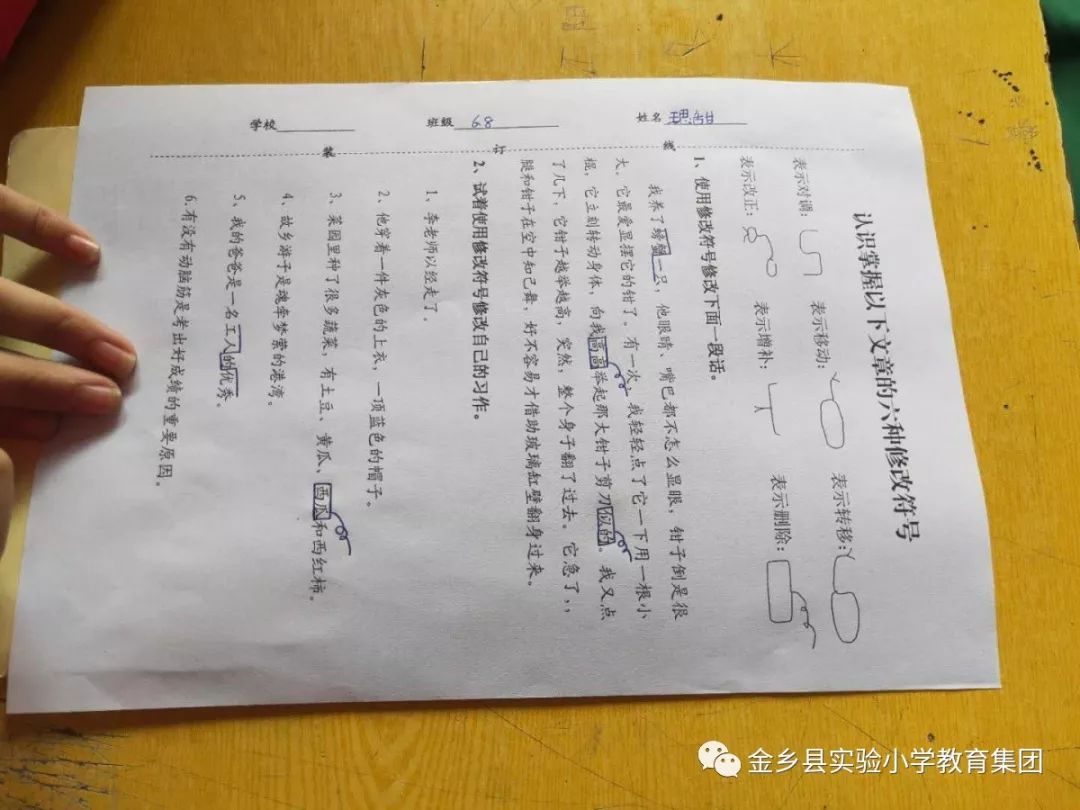 学校 班级 6.8 姓名
装 订 线
认识掌握以下文章的六种修改符号
表示对调： 表示移动： 表示转移：
表示改正： 表示增补： 表示删除：
1、使用修改符号修改下面一段话。
我养了螃蟹一只，他眼睛、嘴巴都不怎么显眼，钳子倒是很
大，它最爱显摆它的钳了。有一次，我轻轻点了它一下用一根小
棍，它立刻转动身体，向我高高举起那大钳子剪刀似的。我又点
了几下，它钳子越举越高，突然，整个身子翻了过去。它急了，，
腿和钳子在空中知己舞，好不容易才借助玻璃缸壁翻身过来。
2、试着使用修改符号修改自己的习作。
1、李老师以经走了。
2、他穿着一件灰色的上衣，一顶蓝色的帽子。
3、菜园里种了很多蔬菜，有土豆、黄瓜、西瓜和西红柿。
4、故乡游子是魂牵梦萦的港湾。
5、我的爸爸是一名工人的优秀。
6.有没有动脑筋是考出好成绩的重要原因。
金乡县实验小学教育集团